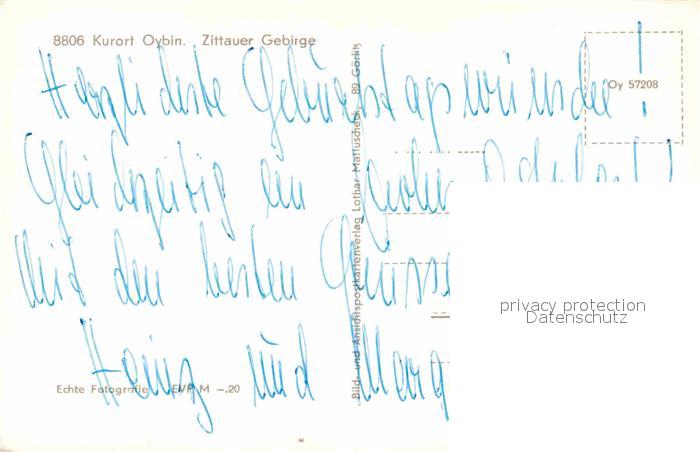 8806 Kurort Oybin. Zittauer Gebirge
Herzlichste Geburtstagswünsche!
Gleichzeitig ein frohes
und den besten Grüsse
Heinz und Marg
Echte Fotografie EVP M -,20
Bild- und Ansichtspostkartenverlag Lothar Mattuscheck, 89 Görlitz
Oy 57208
privacy protection
Datenschutz